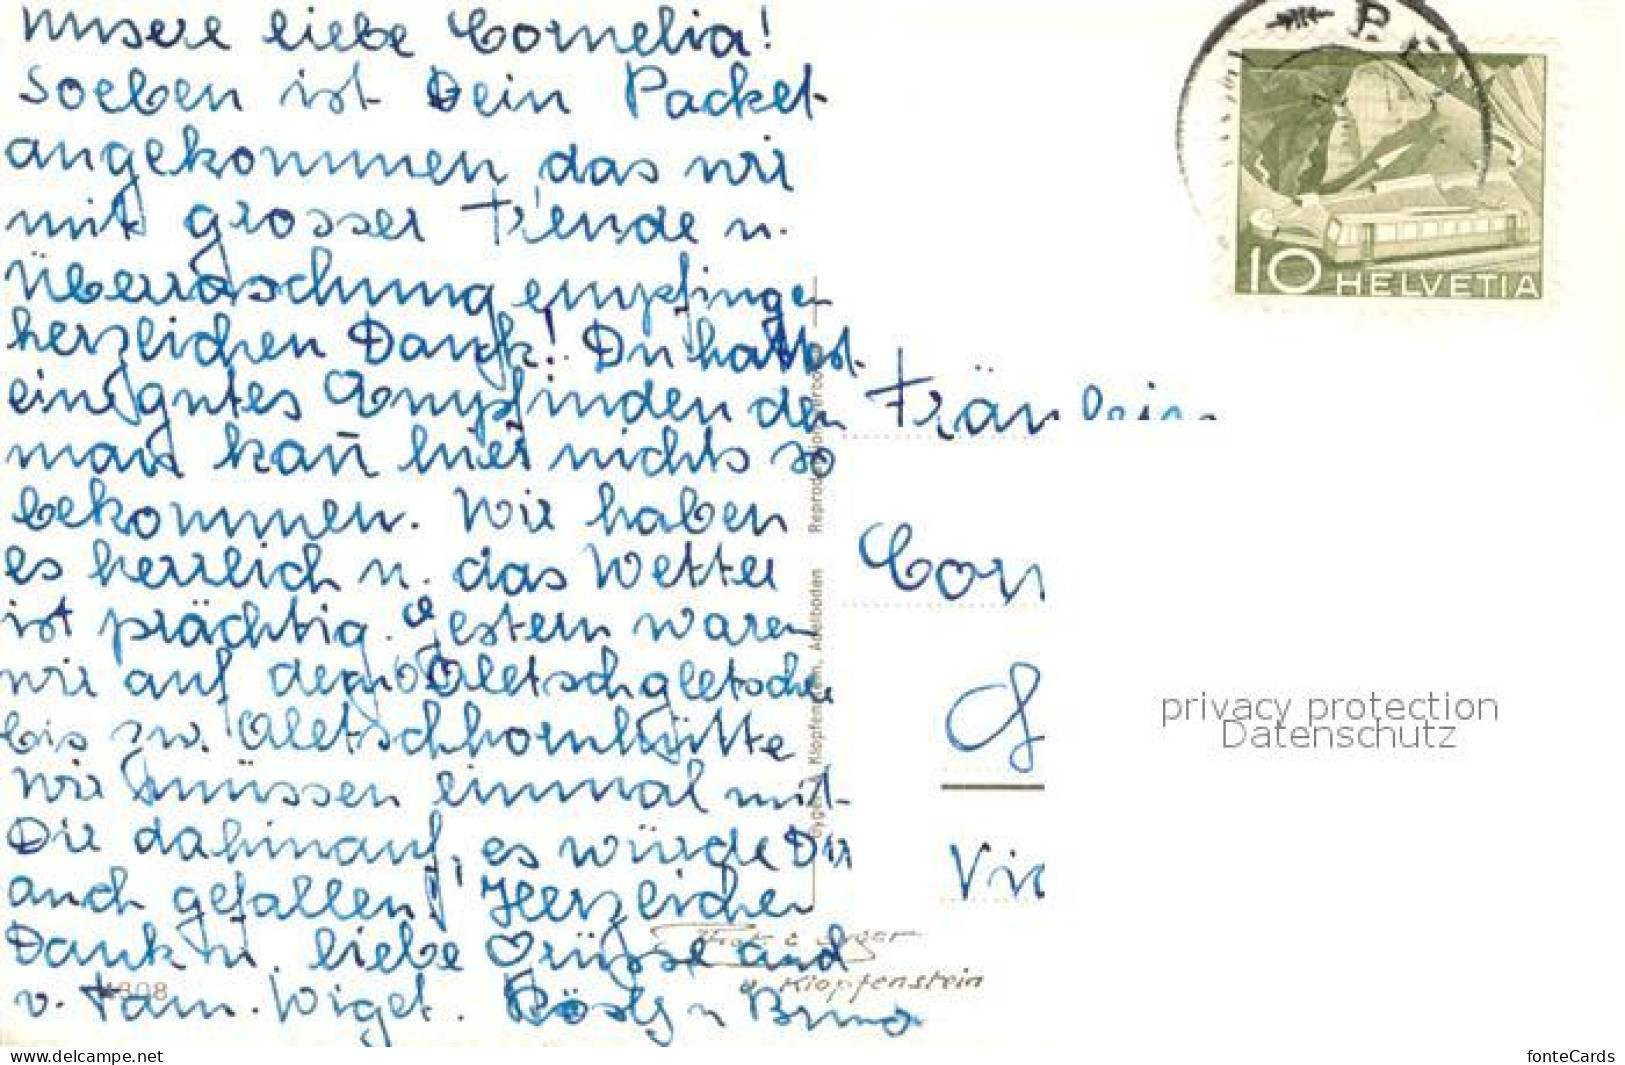 unsere liebe Cornelia!
soeben ist Dein Packet
angekommen das wir
mit grosser Freude u.
Überraschung empfingen
herzlichen Dank! Du hattest
ein gutes Empfinden den
man kañ hier nichts so
bekommen. Wir haben
es herrlich u. das Wetter
ist prächtig. Gestern waren
wir auf dem Aletschgletscher
bis zur Aletschhornhütte
Wir müssen einmal mit
Dir dahinauf, es würde Dir
auch gefallen! Herzlichen
Dank u. liebe Grüsse auch
v. Fam. Wiget. Rösly u Bruno
4308
Gyger & Klopfenstein, Adelboden Reproduktion verboten
Phot. E Gyger
& Klopfenstein
P.P.
10 HELVETIA
Fräulein
Corn
G
Vic
privacy protection
Datenschutz
www.delcampe.net
fonteCards